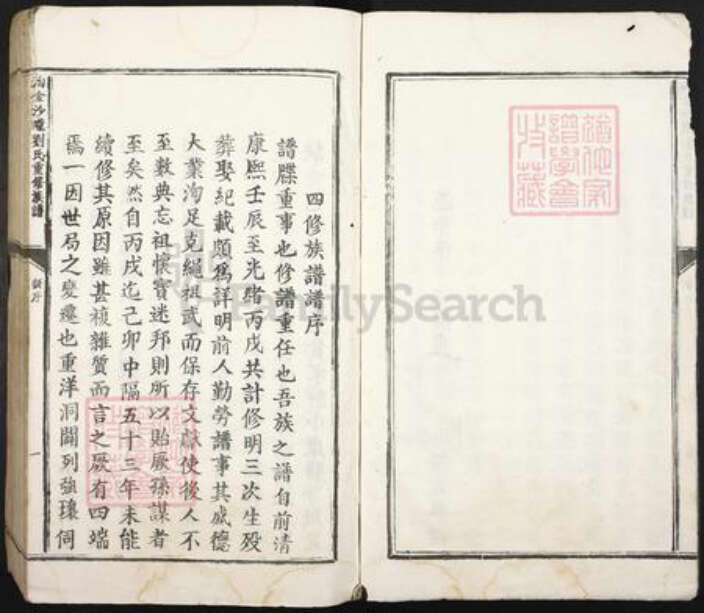 四修族譜譜序
譜牒重事也修譜重任也吾族之譜自前清
康熙壬辰至光緒丙戌共計修明三次生殁
葬娶紀載頗爲詳明前人勤勞譜事其盛德
大業洵足克繩祖武而保存文獻使後人不
至數典忘祖懷寶迷邦則所以貽厥孫謀者
至矣然自丙戌迄己卯中隔五十三年未能
續修其原因雖甚複雜質而言之厥有四端
焉一因世局之變遷也重洋洞闢列強環伺
劉氏重修族譜
FamilySearch